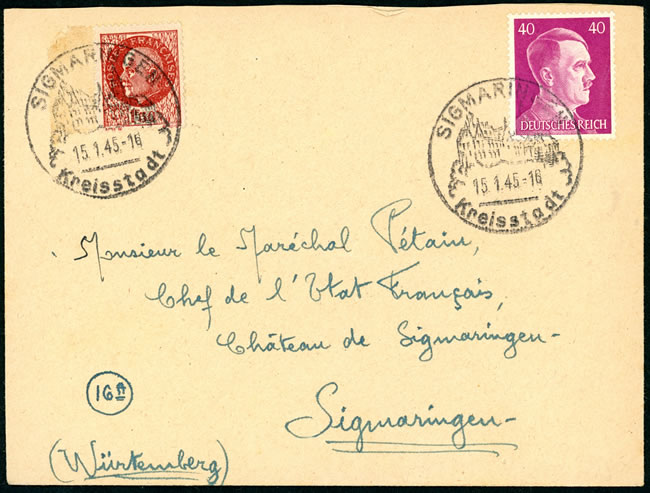 POSTES FRANÇAISES
1F50
SIGMARINGEN
15.1.45-16
Kreisstadt
40 40
DEUTSCHES REICH
SIGMARINGEN
15.1.45-16
Kreisstadt
Monsieur le Maréchal Pétain,
Chef de l'Etat Français,
Château de Sigmaringen-
16a
Sigmaringen-
(Würtemberg)